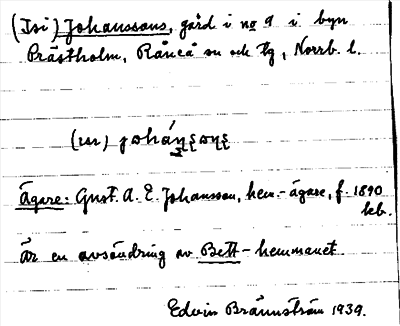 (Isi) Johanssons, gård i no 9 i byn
Prästholm, Råneå sn och tg, Norrb. l.
Ägare: Gust. A. E. Johansson, hem.-ägare, f. 1890
Är en avsöndring av Bett-hemmanet.
Edvin Brännström 1939.